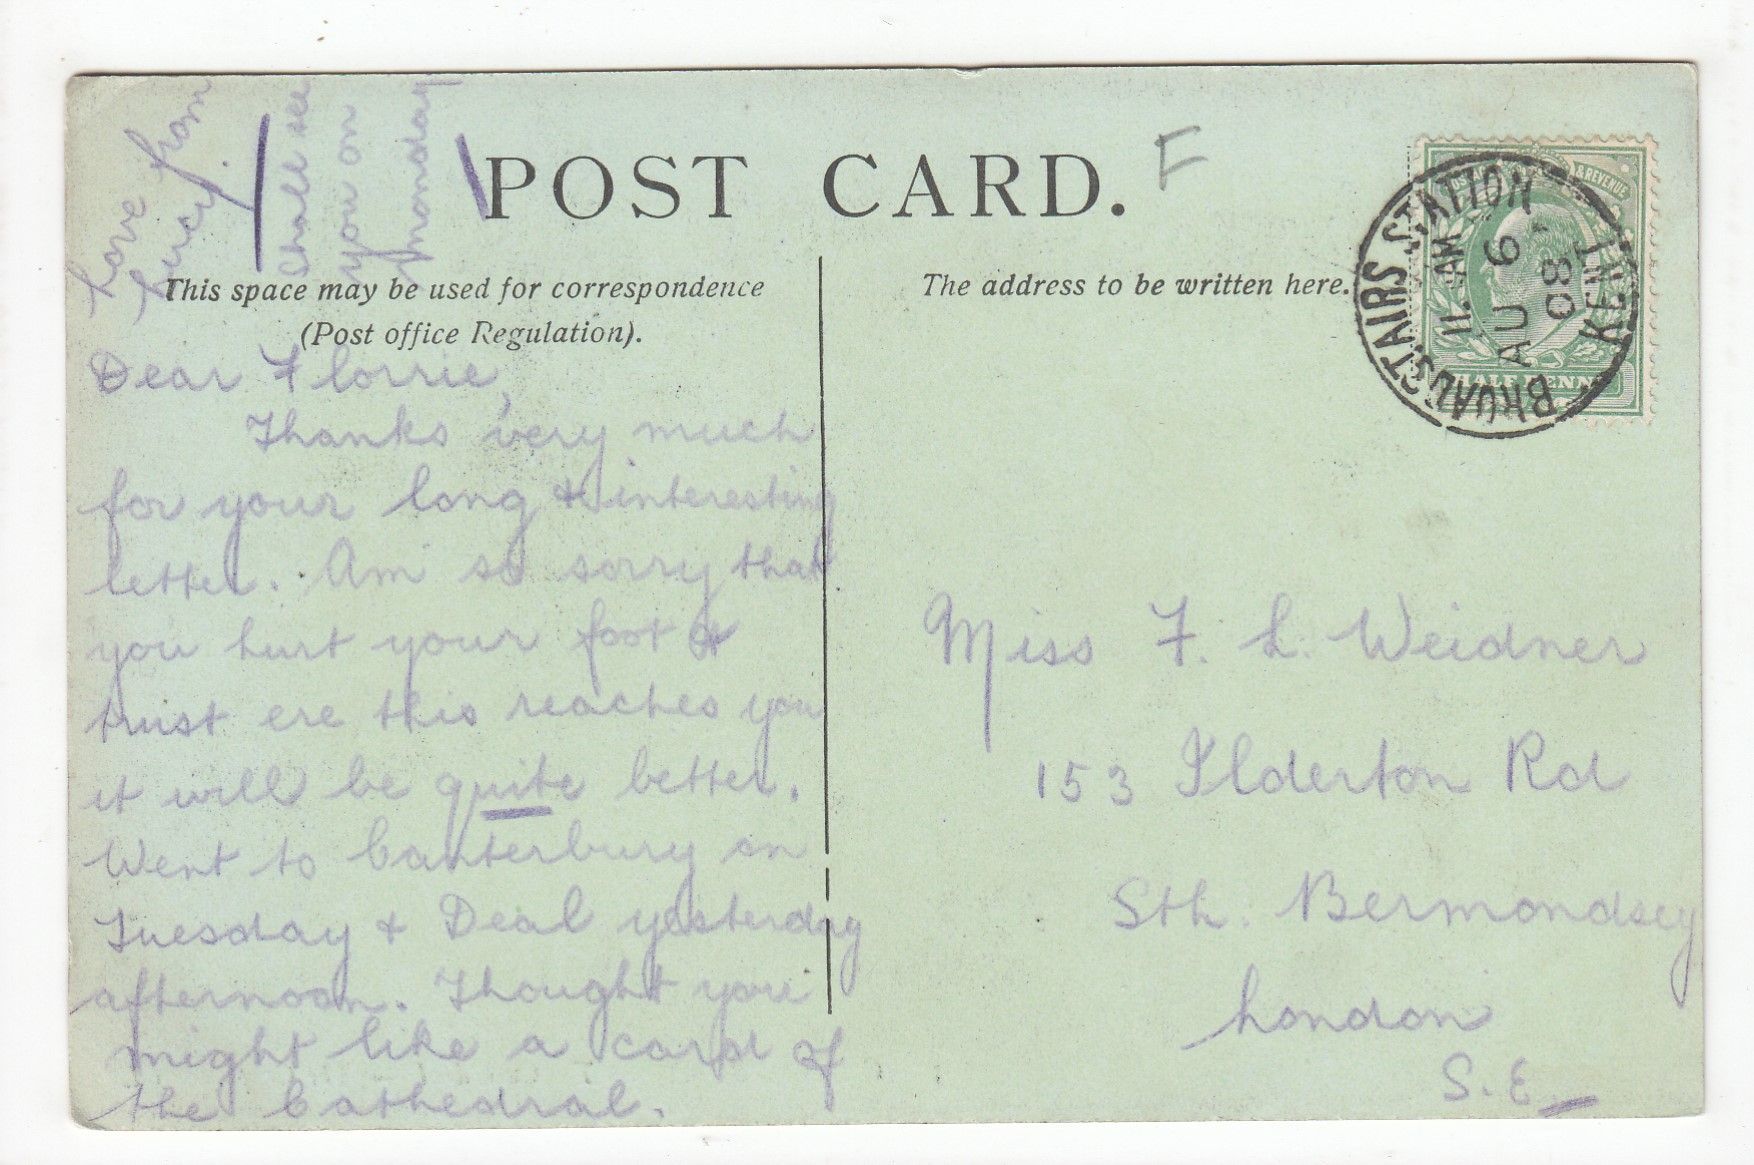 Love from
Lucy.
Shall see
you on
Monday
POST CARD.
F
This space may be used for correspondence
(Post office Regulation).
The address to be written here.
BROADSTAIRS STATION
11. AM
AU 6
08
KENT
& REVENUE
HALFPENNY
Dear Florrie,
Thanks very much
for your long & interesting
letter. Am so sorry that
you hurt your foot &
trust ere this reaches you
it will be quite better.
Went to Canterbury on
Tuesday & Deal yesterday
afternoon. Thought you
might like a card of
the Cathedral.
Miss F. L. Weidner
153 Ilderton Rd
Sth. Bermondsey
London
S.E.